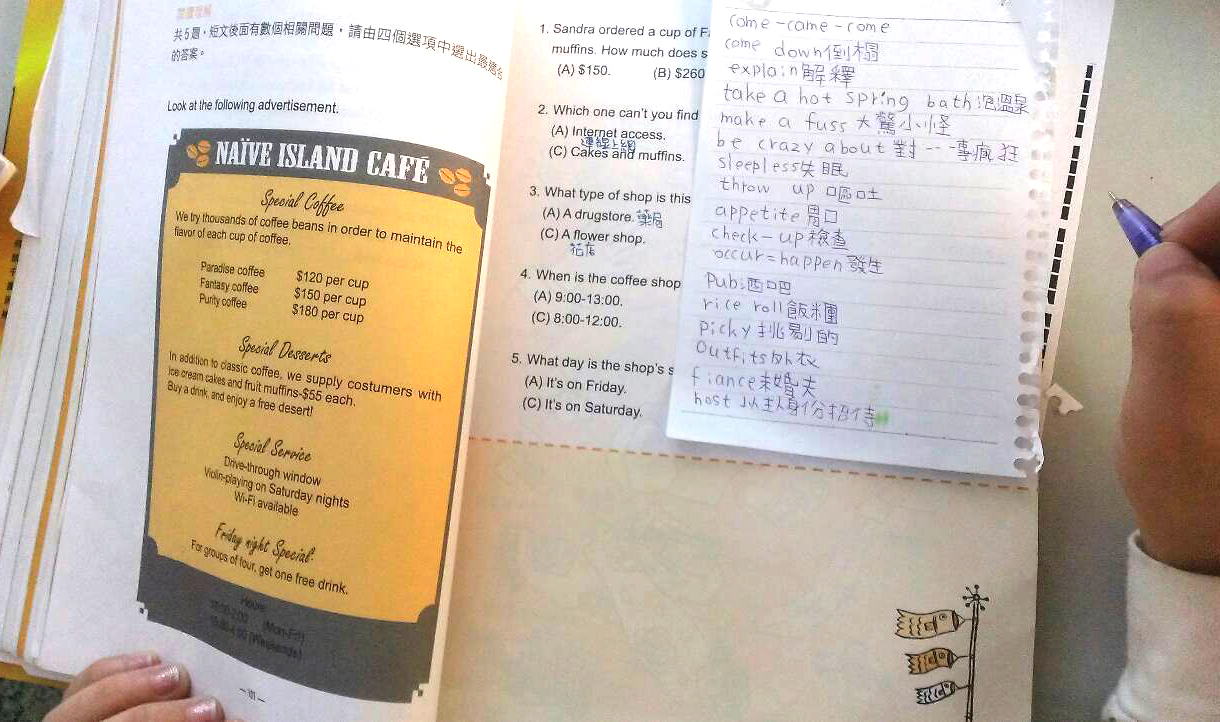 閱讀理解
共5題，短文後面有數個相關問題，請由四個選項中選出最適合
的答案。
Look at the following advertisement.
NAÏVE ISLAND CAFÉ
Special Coffee
We try thousands of coffee beans in order to maintain the
flavor of each cup of coffee.
Paradise coffee $120 per cup
Fantasy coffee $150 per cup
Purity coffee $180 per cup
Special Desserts
In addition to classic coffee, we supply costumers with
ice cream cakes and fruit muffins-$55 each.
Buy a drink, and enjoy a free desert!
Special Service
Drive-through window
Violin-playing on Saturday nights
Wi-Fi available
Friday night Special:
For groups of four, get one free drink.
Hours
(Mon-Fri)
(Weekends)
1. Sandra ordered a cup of F
muffins. How much does s
(A) $150. (B) $260
2. Which one can't you find
(A) Internet access.
連線上網
(C) Cakes and muffins.
3. What type of shop is this
(A) A drugstore. 藥局
(C) A flower shop.
花店
4. When is the coffee shop
(A) 9:00-13:00.
(C) 8:00-12:00.
5. What day is the shop's s
(A) It's on Friday.
(C) It's on Saturday.
come-came-come
come down倒榻
explain解釋
take a hot spring bath泡溫泉
make a fuss 大驚小怪
be crazy about 對--事瘋狂
sleepless失眠
throw up 嘔吐
appetite 胃口
check-up 檢查
occur=happen 發生
Pub:酒吧
rice roll飯糰
picky 挑剔的
Outfits外衣
fiance未婚夫
host 以主人身份招待